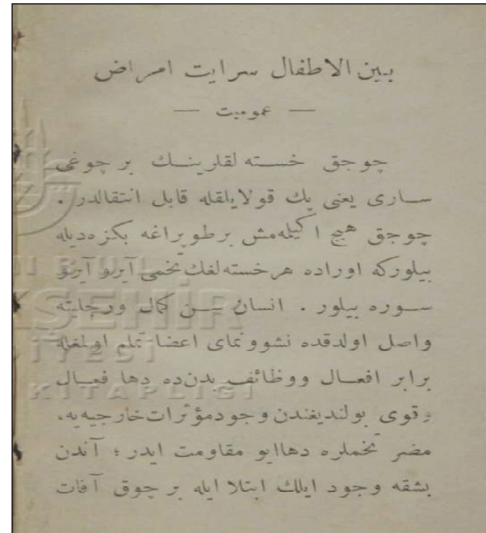 بين الاطفال سرايت امراض
— عموميت —
چوجق خسته لقارينك بر چوغى
سارى يعنى پك قولايلقله قابل انتقالدر .
چوجق هيچ اكيلمه مش بر طوپراغه بكزه ديله
بيلوركه اوراده هر خسته لغك تخمى آيرى آيرى
سوره بيلور . انسان سن كمال ورجليته
واصل اولدقده نشوونماى اعضا تمام اولمغله
برابر افعال ووظائف بدن ده دها فعال
وقوى بولنديغندن وجود مؤثرات خارجيه يه،
مضر تخملره دها ايو مقاومت ايدر ؛ آندن
بشقه وجود ايلك ابتلا ايله بر چوق آفات